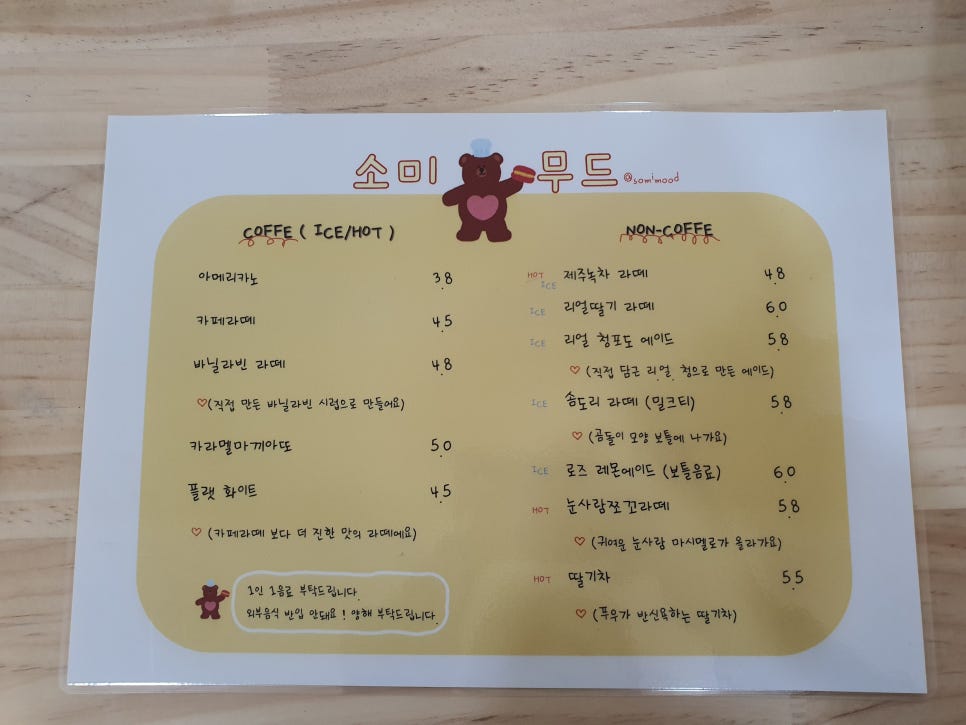 소미 무드 @somimood
COFFE ( ICE/HOT )
아메리카노 3.8
카페라떼 4.5
바닐라빈 라떼 4.8
♡(직접 만든 바닐라빈 시럽으로 만들어요)
카라멜마끼아또 5.0
플랫 화이트 4.5
♡ (카페라떼 보다 더 진한 맛의 라떼에요)
1인 1음료 부탁드립니다.
외부음식 반입 안돼요 ! 양해 부탁드립니다.
NON-COFFE
HOT ICE 제주녹차 라떼 4.8
ICE 리얼딸기 라떼 6.0
ICE 리얼 청포도 에이드 5.8
♡ (직접 담근 리얼 청으로 만든 에이드)
ICE 솜도리 라떼 (밀크티) 5.8
♡ (곰돌이 모양 보틀에 나가요)
ICE 로즈 레몬에이드 (보틀음료) 6.0
HOT 눈사람쪼꼬라떼 5.8
♡ (귀여운 눈사람 마시멜로가 올라가요)
HOT 딸기차 5.5
♡ (푸우가 반신욕하는 딸기차)